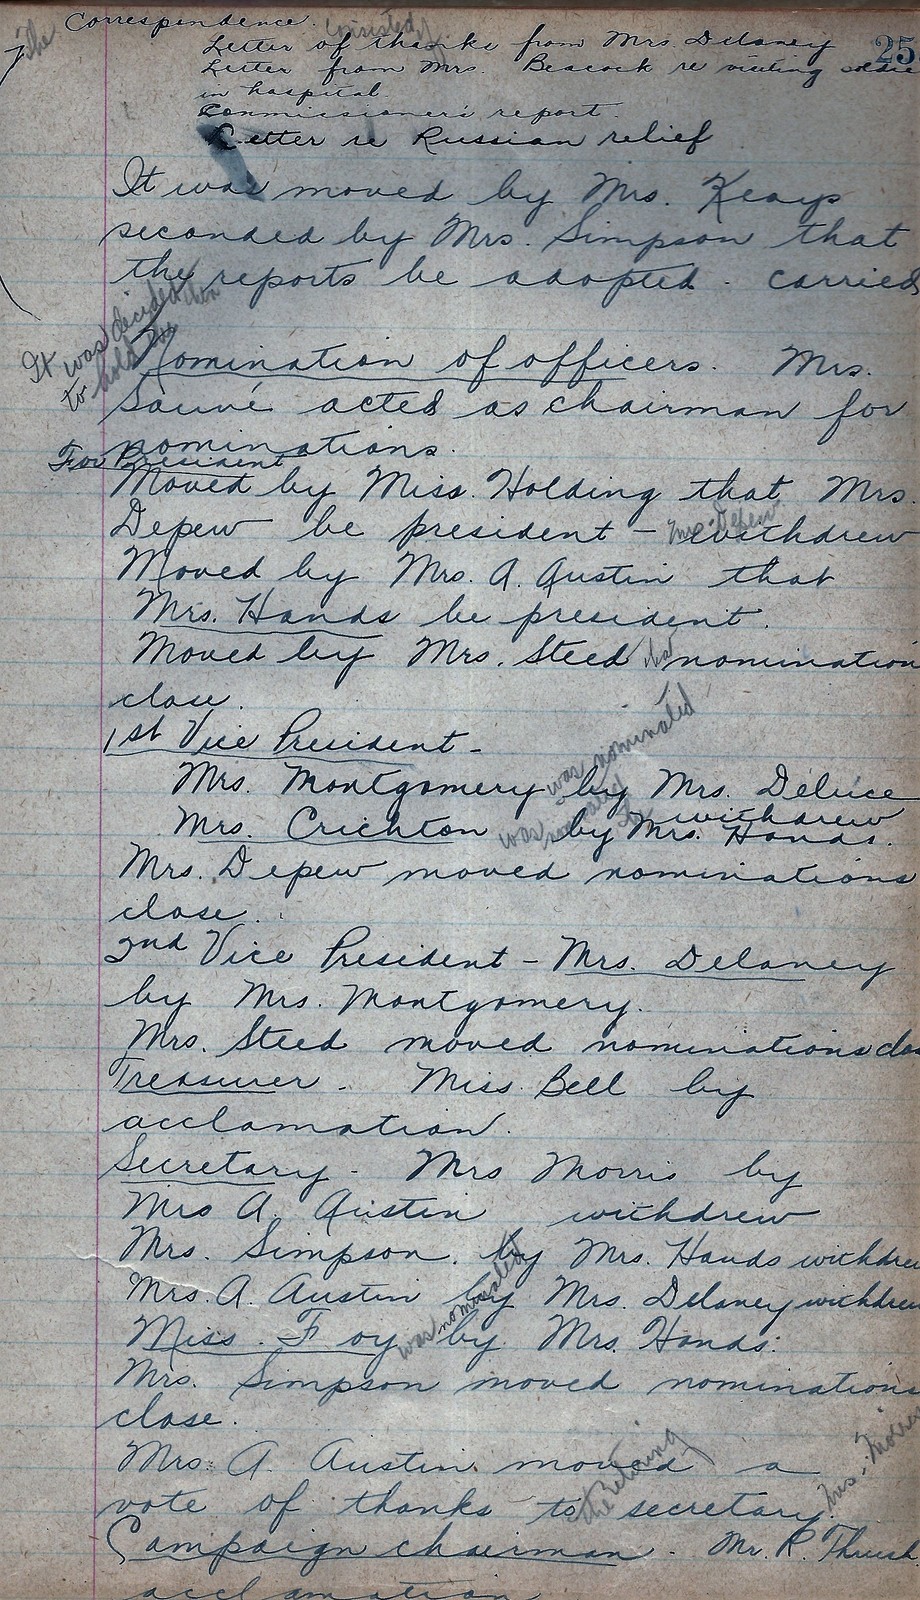 The Correspondence. 25
Letter of thanks from Mrs. Delaney
Letter from Mrs. Beacock re visiting
in hospital.
Commissioner's report.
Letter re Russian relief
It was moved by Mrs. Keays
seconded by Mrs. Simpson that
the reports be adopted - carried
It was decided
to hold the
Nomination of officers. Mrs.
Sauvé acted as chairman for
nominations.
For President
Moved by Miss. Holding that Mrs.
Depew be president - Mrs. Depew withdrew
Moved by Mrs. A. Austin that
Mrs. Hands be president.
Moved by Mrs. Steed nomination
close.
1st Vice President -
was nominated
Mrs. Montgomery by Mrs. Deluce
withdrew
Mrs. Crichton was nominated by Mrs. Hands.
Mrs. Depew moved nominations
close.
2nd Vice President - Mrs. Delaney
by Mrs. Montgomery.
Mrs. Steed moved nominations clos
Treasurer. Miss. Bell by
acclamation.
Secretary - Mrs Morris by
Mrs A. Austin withdrew
Mrs. Simpson. by Mrs. Hands withdrew
Mrs. A. Austin by Mrs. Delaney withdrew
Miss. Foy was nominated by Mrs. Hands.
Mrs. Simpson moved nominations
close.
Mrs. A. Austin moved a
vote of thanks to the retiring secretary. Mrs. Morris
Campaign chairman - Mr. R. Thrush
acclamation